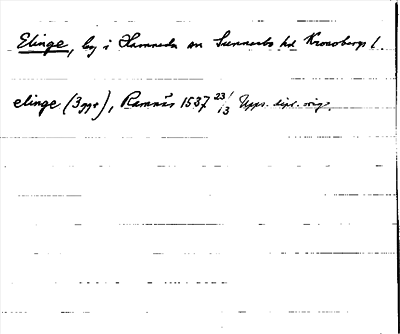 Elinge, by i Hamneda sn Sunnerbo hd Kronobergs l.
elinge (3 ggr), Ramnås 1537 23/13 Upps. dipl. orig.